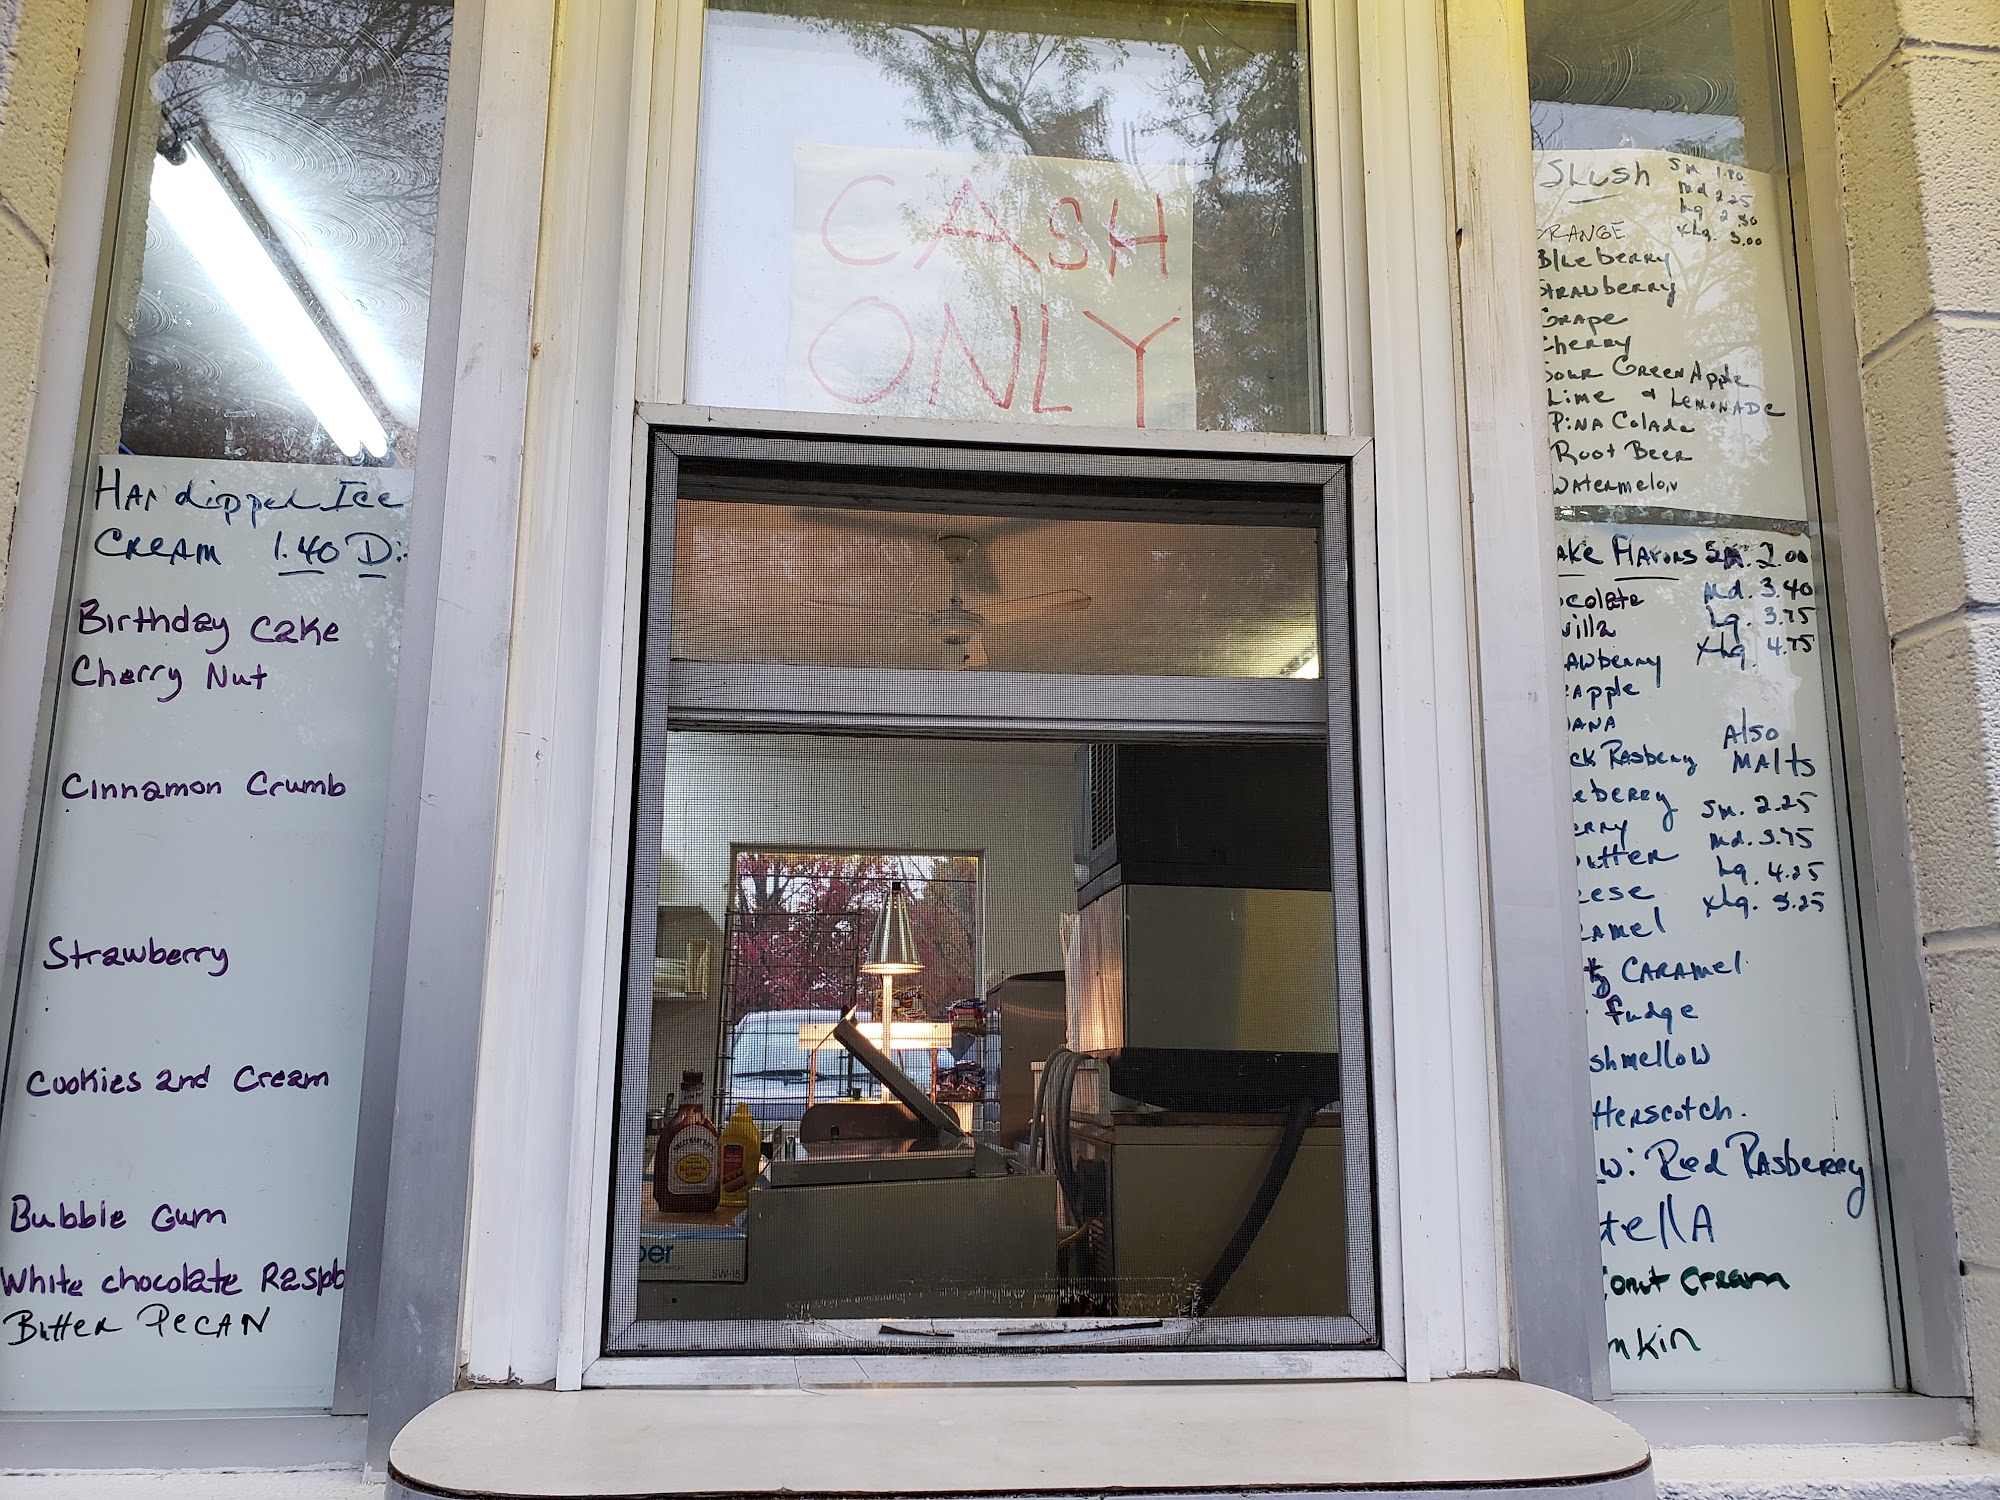 CASH
ONLY
Hardipped Ice
CREAM 1.40 Di
Birthday Cake
Cherry Nut
Cinnamon Crumb
Strawberry
Cookies and Cream
Bubble Gum
White chocolate Raspb
Butter PECAN
Slush Sm 1.80
md 2.25
Lg 2.50
xLg. 3.00
ORANGE
Blueberry
Strawberry
Grape
Cherry
Sour Green Apple
Lime & Lemonade
Pina Colada
Root Beer
Watermelon
ake Flavors Sm. 2.00
md. 3.40
Lg. 3.75
xLg. 4.75
colate
illa
awberry
eapple
ANA
ck Rasberry
eberry
erry
utter
eese
amel
y CARAmel
fudge
shmellow
tterscotch.
w: Red Rasberry
tellA
conut Cream
mkin
Also
Malts
Sm. 2.25
md. 3.75
Lg. 4.25
xLg. 5.25
per
SW-16